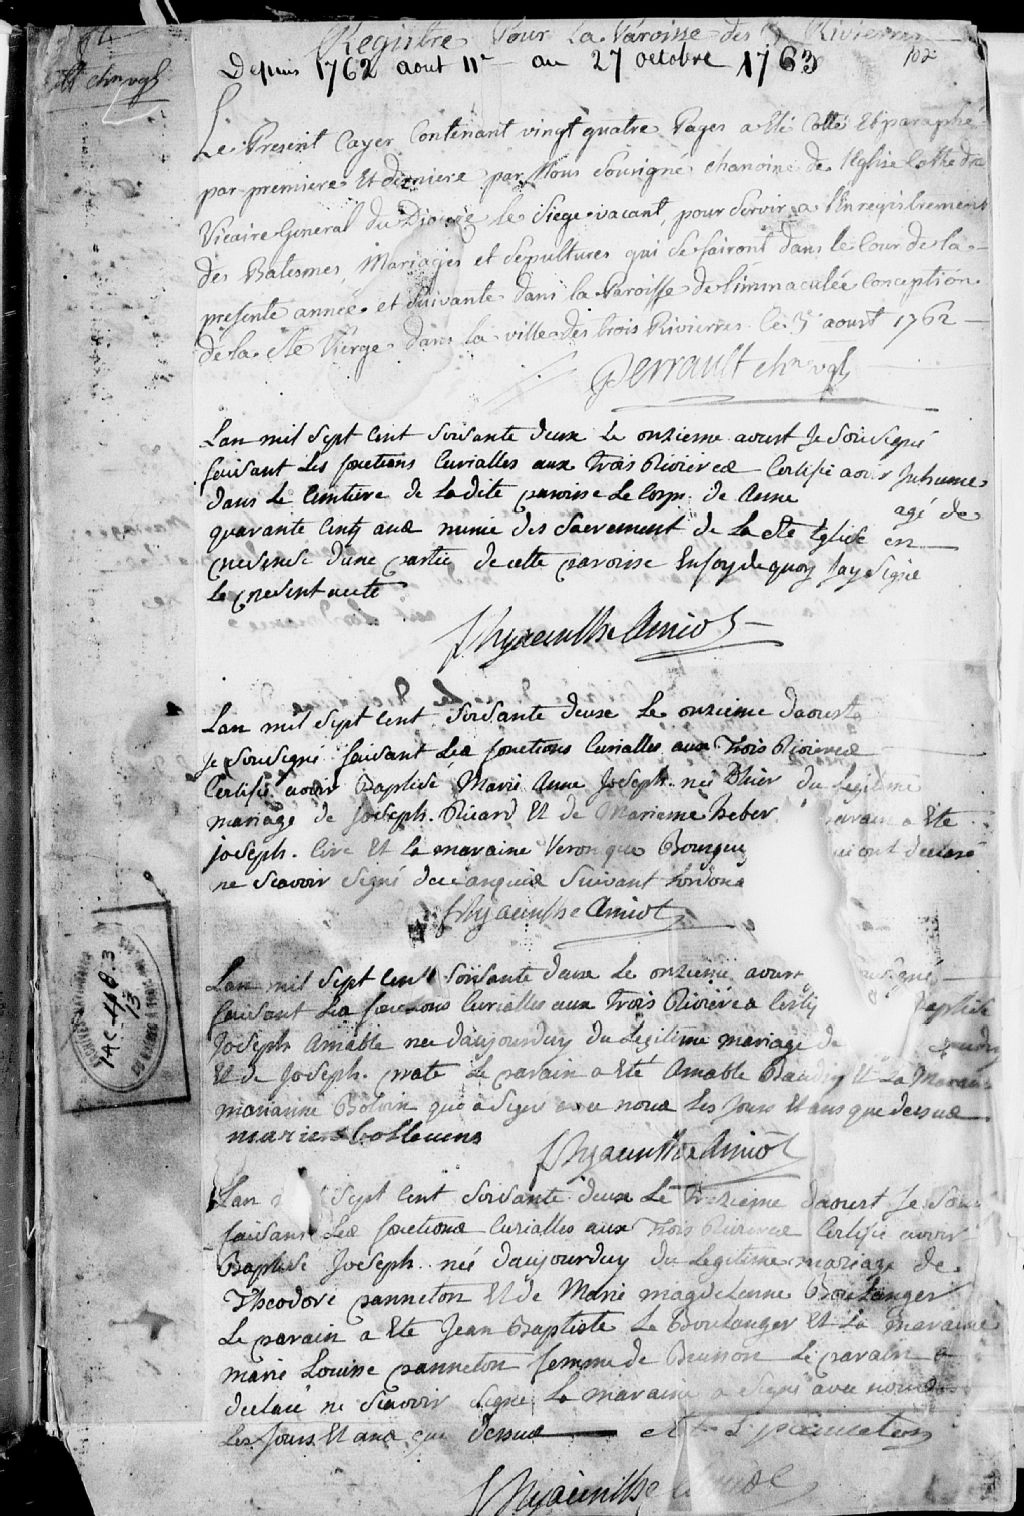 Registre Pour La Paroisse des 3 Rivierres
102
Depuis 1762 aout 11e au 27 octobre 1763
chne vgl
Le Present Cayer Contenant vingt quatre Pages a Eté Cotté Et paraphé
par premiere Et derniere par Nous Sousigné chanoine de l'Eglise Cathedra
Vicaire General du Diocese le Siege vacant, pour Servir a l'Enregistrement
des Batesmes, Mariages et Sepultures qui Se fairont dans le Cour de la
presente année et Suivante dans la Paroisse de l'immaculée Conception
de la Ste Vierge dans la ville des trois Rivierres Ce 3e aoust 1762
Perrault chne vgl
Lan mil Sept Cent Soisante deux Le onzieme aoust Je Sousigné
faisant Les fonctions Curialles aux Trois Rivierea Certifie avoir Inhumé
dans Le Cimtiere de Ladite paroisse Le Corp de Anne agé de
quarante Cinq ans munie des Sacrement de La Ste Eglise en
presense d'une partie de cette paroisse En foy de quoy Jay Signé
Le present acte
f hyacinthe Amiot
Lan mil Sept Cent Soisante deuxe Le onzieme daoust
Je Sousigné faisant Les fonctions Curialles aux Trois Rivierea
Certifie avoir Baptisé Marie Anne Joseph née D'hier du Legitime
mariage de Joseph Ricard Et de Marienne heber parain a Ete
Joseph Cire Et la maraine Veronque Bourgu qui ont declaré
ne Scavoir Signé de ce Suivant Lordona
f hyacinthe Amiot
Lan mil Sept Cent Soisante deux Le onzieme aoust Sousigné
faisant Les fonctions Curialles aux Trois Rivierea Certi Baptisé
Joseph Amable né daujourduy du Legitime mariage de
Et de Joseph prate Le parain a Eté Amable Baudry Et La Marain
marianne Bolvin que a Signé avec nous Les Jours Et ans que dessus
marie
f hyacinthe Amiot
Lan Sept Cent Soisante deux Le trezieme daoust Je Sou
faisant Les fonctions Curialles aux Trois Rivierea Certifie avoir
Baptisé Joseph né daujourduy du Legitime mariage de
Theodore panneton Et de Marie magdelenne Boulanger
Le parain a Eté Jean Baptiste Le Boulanger Et La maraine
marie Louise panneton femme de Brunson Le parain a
declaré ne Scavoir Signé La maraine a Signé avec nous
Les Jours Et ans que dessus
f hyacinthe Amiot
7AC-448.3
13